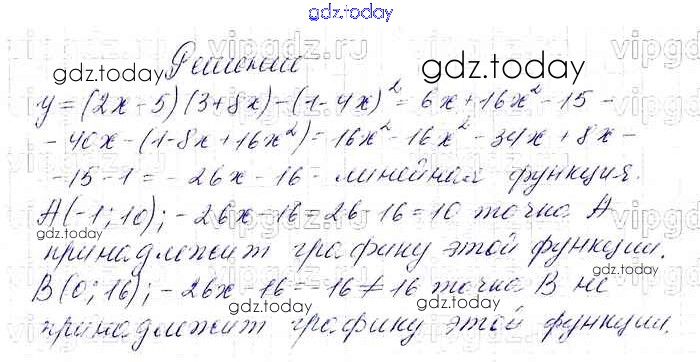 gdz.today
Решение
gdz.today
gdz.today
y=(2x-5)(3+8x)-(1-4x)²=6x+16x²-15-
-40x-(1-8x+16x²)=16x²-16x²-34x+8x-
-15-1=-26x-16-линейная функция.
A(-1;10);-26x-16=26-16=10 точка A
gdz.today
принадлежит графику этой функции.
gdz.today
B(0;16);-26x-16=-16≠16 точка B не
gdz.today
принадлежит графику этой функции.